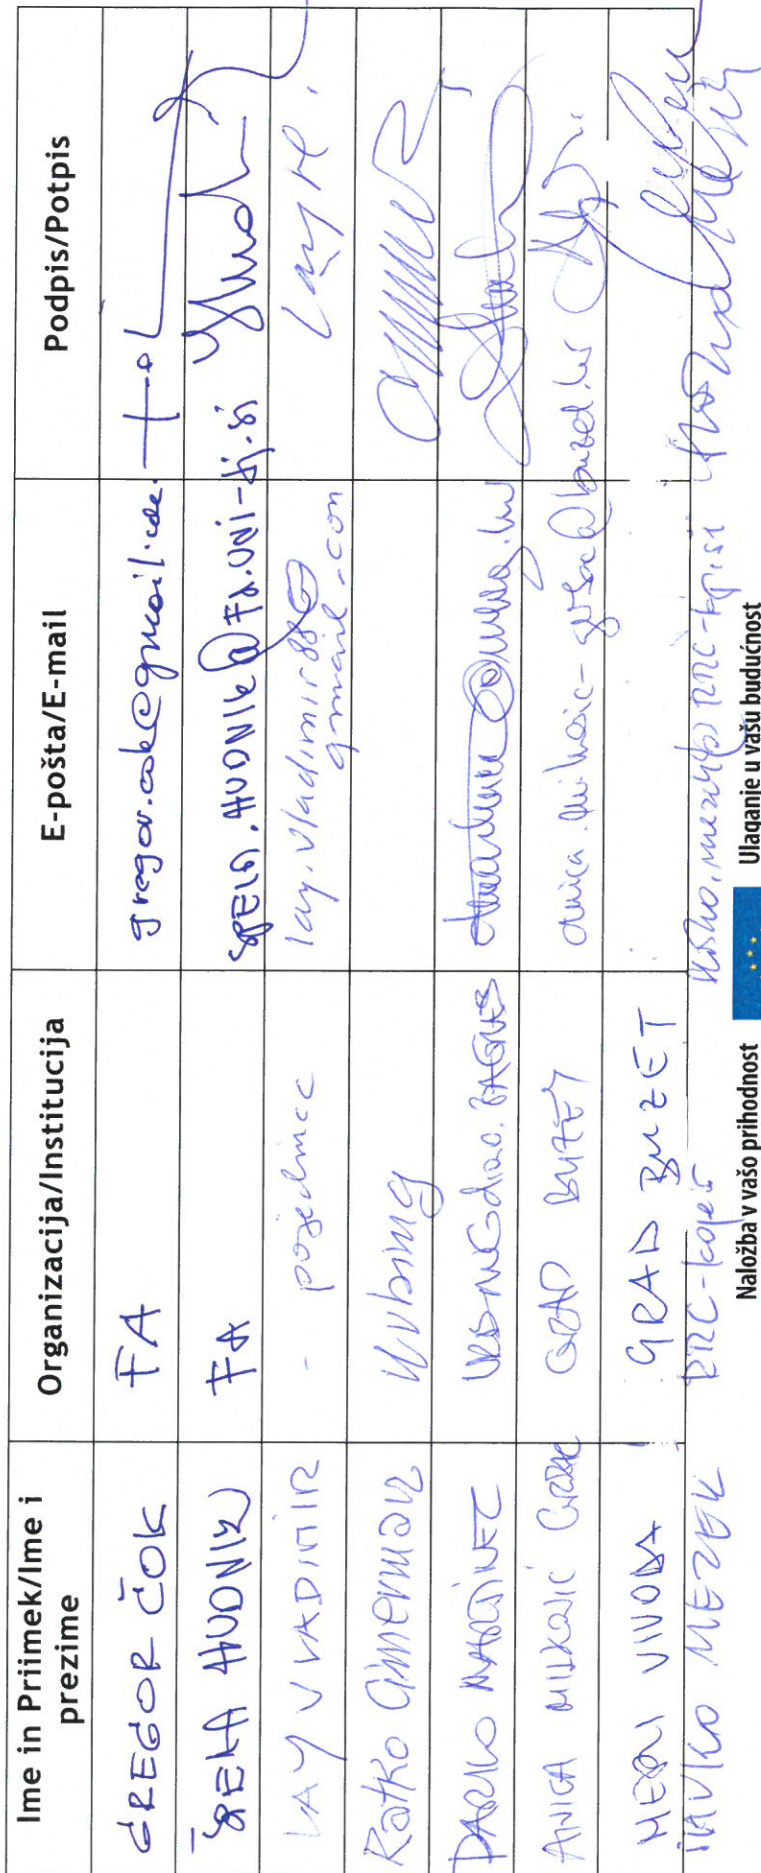 Ime in Priimek/Ime i prezime Organizacija/Institucija E-pošta/E-mail Podpis/Potpis
GREGOR ČOK FA gregor.cok@gmail.com
ŠPELA HUDNIK FA SPELA.HUDNIK@FA.UNI-LJ.SI
LAY VLADIMIR - pojedinac lay.vladimir88@gmail.com Lay Vl.
Ratko Cimerman Urbing
DARKO MARTINEC URBING d.o.o. ZAGREB
ANICA MILKOVIĆ GRBAC GRAD BUZET
MERI VIVODA GRAD BUZET
MEZEK RRC-Koper
Naložba v vašo prihodnost Ulaganje u vašu budućnost